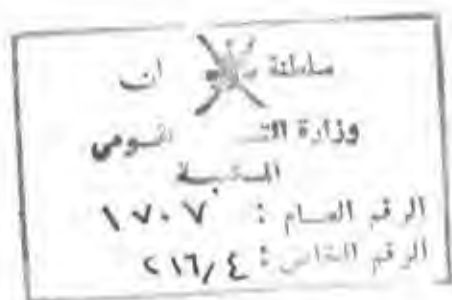 سلطنة ان
وزارة التـ ـقـومى
المـتبـة
الرقم العـام : ١٧٠٧
الرقم الخاص : ٢١٦/٤